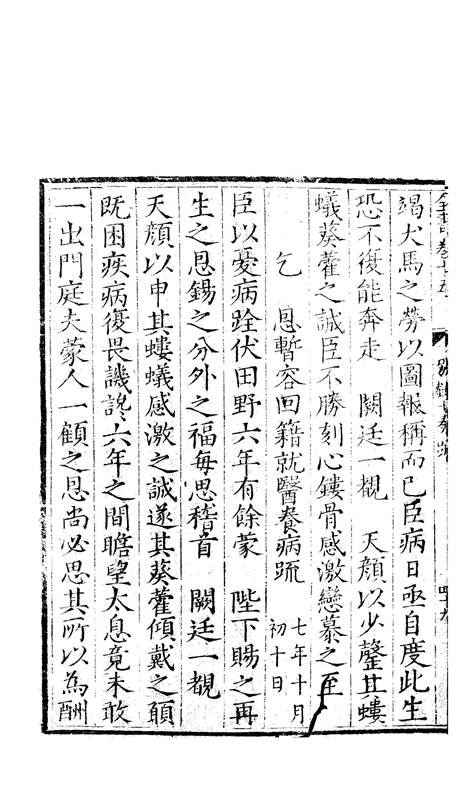 全書卷十五 別錄七奏疏
竭犬馬之勞以圖報稱而已臣病日亟自度此生
恐不復能奔走 闕廷一覩 天顏以少罄其螻
蟻葵藿之誠臣不勝刻心鏤骨感激戀慕之至
乞 恩暫容回籍就醫養病疏 七年十月初十日
臣以憂病跧伏田野六年有餘蒙 陛下賜之再
生之恩錫之分外之福每思稽首 闕廷一覩
天顏以申其螻蟻感激之誠遂其葵藿傾戴之願
既困疾病復畏譏讒六年之間瞻望太息竟未敢
一出門庭夫蒙人一顧之恩尚必思其所以為酬